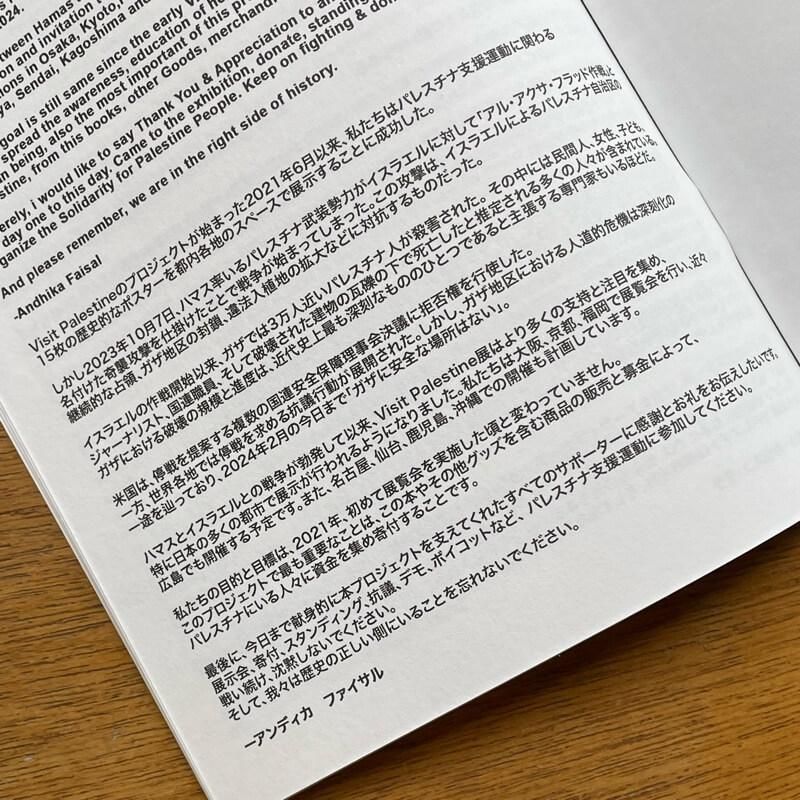 2024.
between Hamas
on and invitation
tions in Osaka, Kyoto,
ya, Sendai, Kagoshima and
goal is still same since the early
spread the awareness, education of
n being, also the most important of this pro
stine, from this books, other Goods, merchand
erely, i would like to say Thank You & Appreciation to
day one to this day. Came to the exhibition, donate, standing
ganize the Solidarity for Palestine People. Keep on fighting & don
And please remember, we are in the right side of history.
-Andhika Faisal
Visit Palestineのプロジェクトが始まった2021年6月以来、私たちはパレスチナ支援運動に関わる
15枚の歴史的なポスターを都内各地のスペースで展示することに成功した。
しかし2023年10月7日、ハマス率いるパレスチナ武装勢力がイスラエルに対して「アル・アクサ・フラッド作戦」と
名付けた奇襲攻撃を仕掛けたことで戦争が始まってしまった。この攻撃は、イスラエルによるパレスチナ自治区の
継続的な占領、ガザ地区の封鎖、違法入植地の拡大などに対抗するものだった。
イスラエルの作戦開始以来、ガザでは3万人近いパレスチナ人が殺害された。その中には民間人、女性、子ども、
ジャーナリスト、国連職員、そして破壊された建物の瓦礫の下で死亡したと推定される多くの人々が含まれている。
ガザにおける破壊の規模と進度は、近代史上最も深刻なもののひとつであると主張する専門家もいるほどだ。
米国は、停戦を提案する複数の国連安全保障理事会決議に拒否権を行使した。
一方、世界各地では停戦を求める抗議行動が展開された。しかし、ガザ地区における人道的危機は深刻化の
一途を辿っており、2024年2月の今日まで「ガザに安全な場所はない」。
ハマスとイスラエルとの戦争が勃発して以来、Visit Palestine展はより多くの支持と注目を集め、
特に日本の多くの都市で展示が行われるようになりました。私たちは大阪、京都、福岡で展覧会を行い、近々
広島でも開催する予定です。また、名古屋、仙台、鹿児島、沖縄での開催も計画しています。
私たちの目的と目標は、2021年、初めて展覧会を実施した頃と変わっていません。
このプロジェクトで最も重要なことは、この本やその他グッズを含む商品の販売と募金によって、
パレスチナにいる人々に資金を集め寄付することです。
最後に、今日まで献身的に本プロジェクトを支えてくれたすべてのサポーターに感謝とお礼をお伝えしたいです。
展示会、寄付、スタンディング、抗議、デモ、ボイコットなど、パレスチナ支援運動に参加してください。
戦い続け、沈黙しないでください。
そして、我々は歴史の正しい側にいることを忘れないでください。
–アンディカ ファイサル